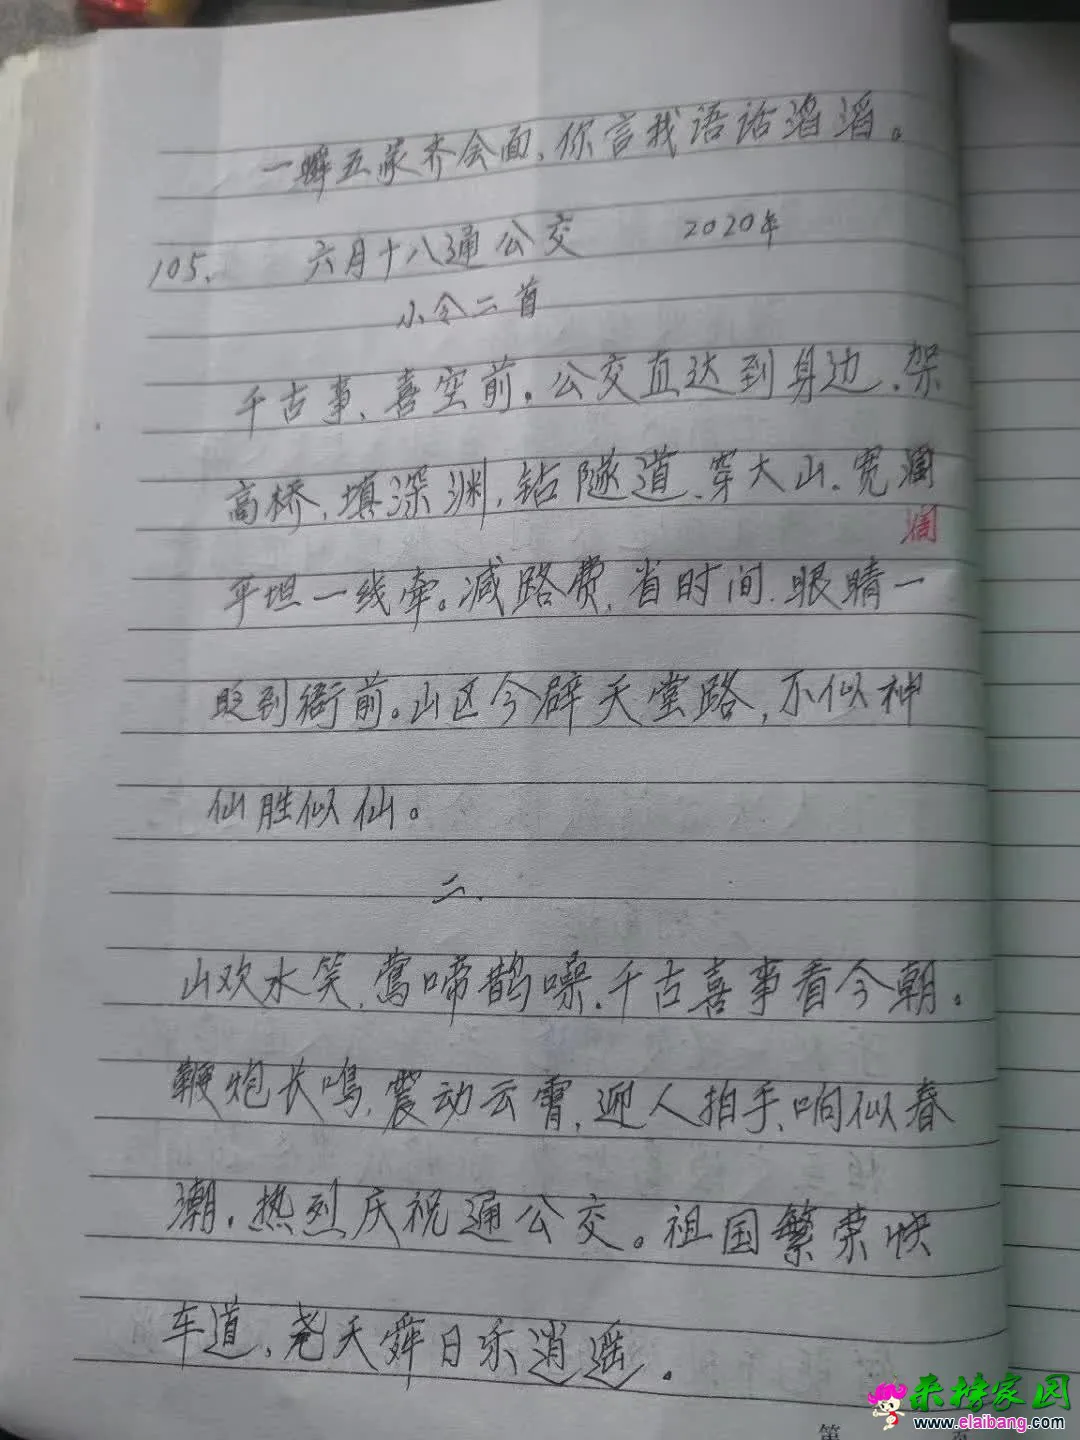 一瞬五家齐会面,你言我语话滔滔。
105、 六月十八通公交 2020年
小令二首
千古事、喜空前。公交直达到身边、架
高桥,填深渊,钻隧道、穿大山、宽阔
阔
平坦一线牵。减路费,省时间、眼睛一
眨到衙前。山区今辟天堂路,不似神
仙胜似仙。
二、
山欢水笑,莺啼鹊噪、千古喜事看今朝。
鞭炮长鸣,震动云霄,迎人拍手、响似春
潮,热烈庆祝通公交。祖国繁荣快
车道,尧天舜日乐逍遥。
来榜家园
www.elaibang.com
第 页